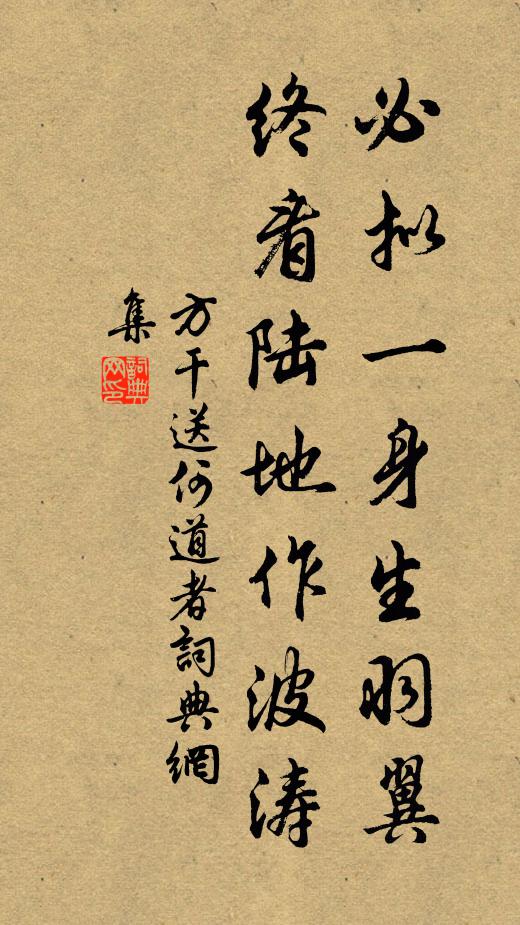 必拟一身生羽翼
终看陆地作波涛
方干送何道者詞典網
集
詞典网印